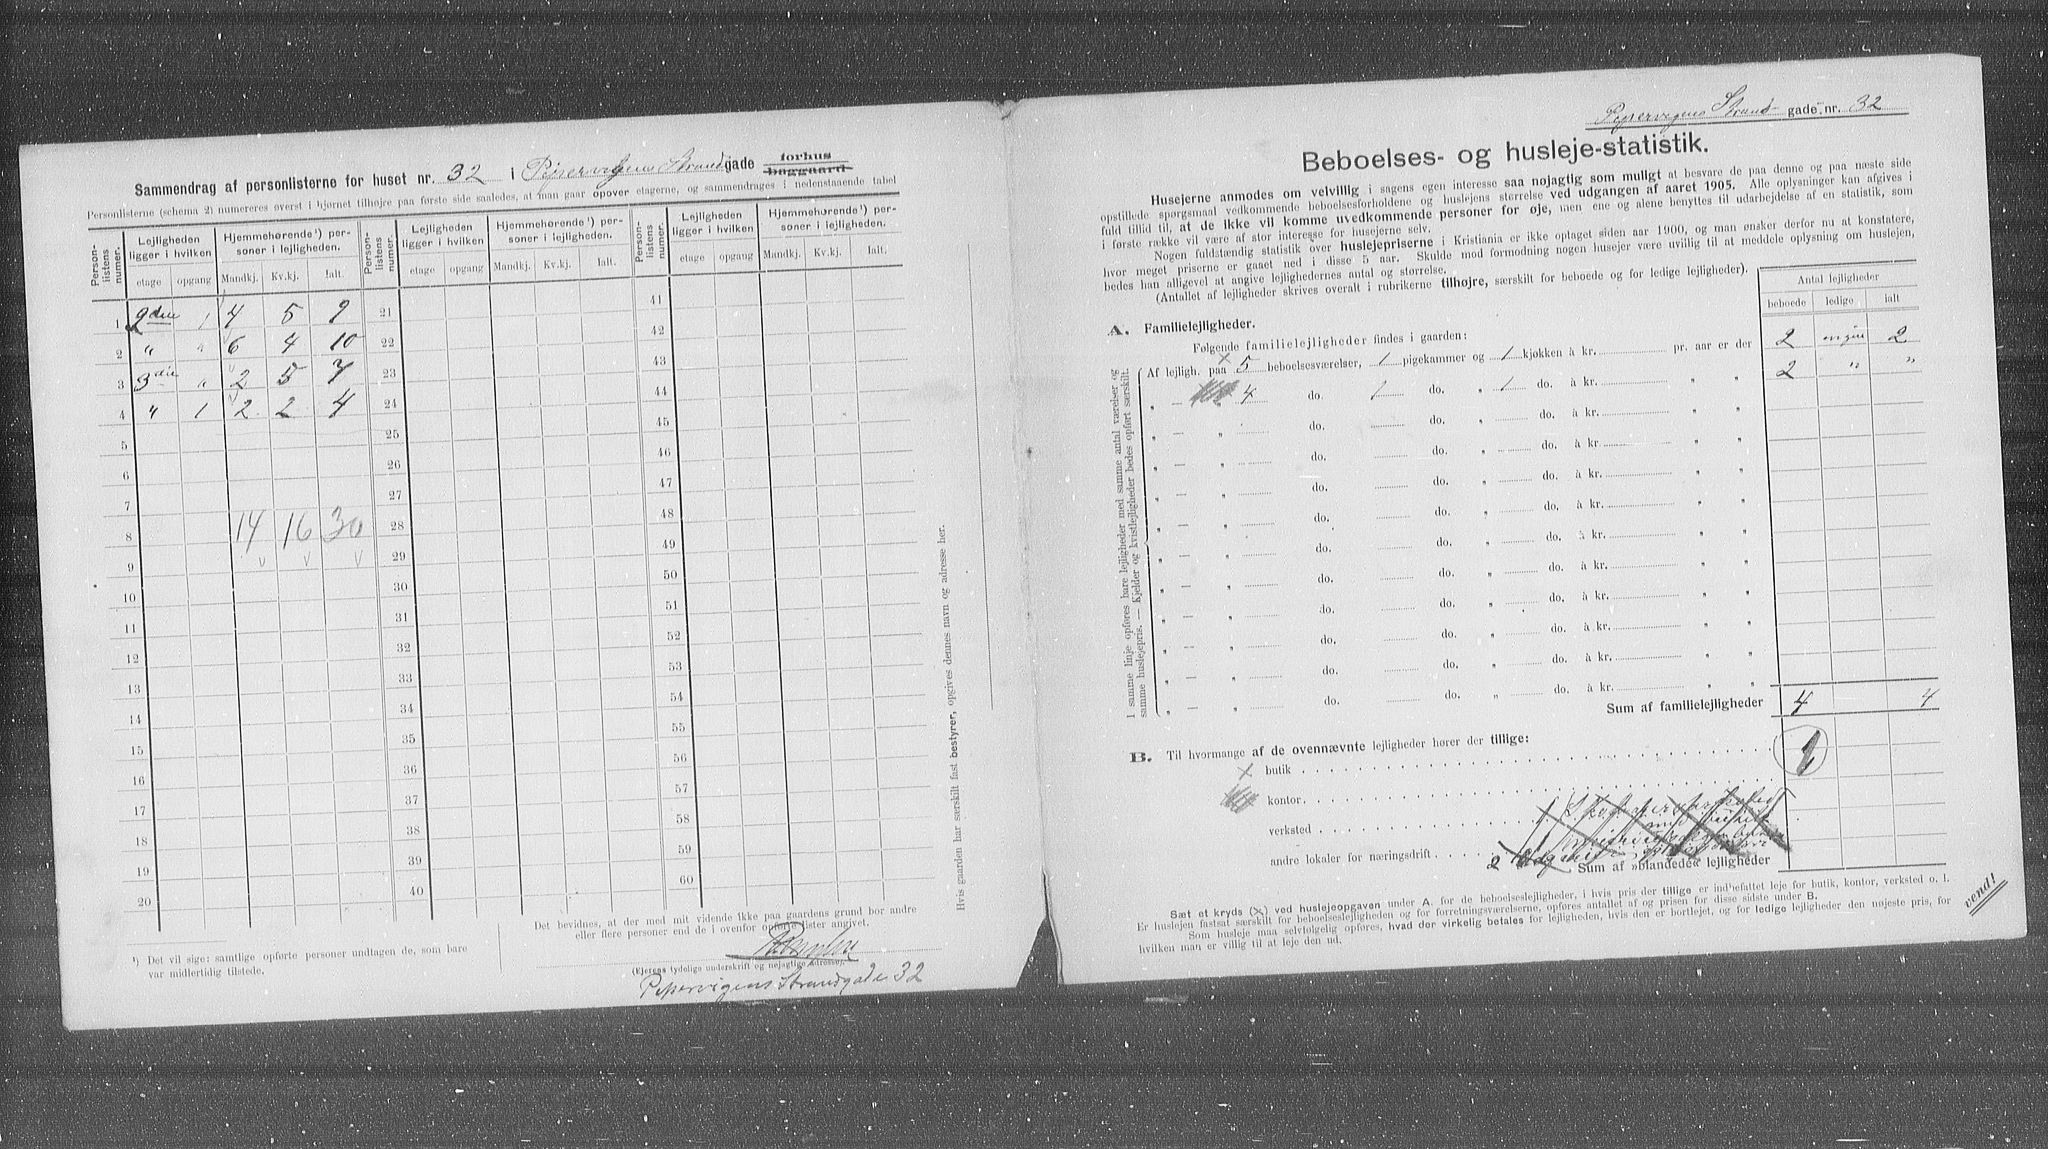 Sammendrag af personlisterne for huset nr. 32 i Pipervigens Strandgade forhus baggaard
Personlisterne (schema 2) numereres øverst i hjørnet tilhøjre paa første side saaledes, at man gaar opover etagerne, og sammendrages i nedenstaaende tabel
Person-listens numer. Lejligheden ligger i hvilken Hjemmehørende¹) personer i lejligheden. Person-listens numer. Lejligheden ligger i hvilken Hjemmehørende¹) personer i lejligheden. Person-listens numer. Lejligheden ligger i hvilken Hjemmehørende¹) personer i lejligheden.
etage opgang Mandkj. Kv.kj. Ialt. etage opgang Mandkj. Kv.kj. Ialt. etage opgang Mandkj. Kv.kj. Ialt.
1 2den 1 4 5 9 21 41
2 " " 6 4 10 22 42
3 3die " 2 5 7 23 43
4 " 1 2 2 4 24 44
5 25 45
6 26 46
7 27 47
8 14 16 30 28 48
9 29 49
10 30 50
11 31 51
12 32 52
13 33 53
14 34 54
15 35 55
16 36 56
17 37 57
18 38 58
19 39 59
20 40 60
¹) Det vil sige: samtlige opførte personer undtagen de, som bare
var midlertidig tilstede.
Det bevidnes, at der med mit vidende ikke paa gaardens grund bor andre
eller flere personer end de i ovenfor opførte lister angivet.
(Ejerens tydelige underskrift og nøjagtige adresse).
Pipervigens Strandgade 32
Hvis gaarden har særskilt fast bestyrer, opgives dennes navn og adresse her.
Pipervigens Strand- gade nr. 32
Beboelses- og husleje-statistik.
Husejerne anmodes om velvillig i sagens egen interesse saa nøjagtig som muligt at besvare de paa denne og paa næste side
opstillede spørgsmaal vedkommende beboelsesforholdene og huslejens størrelse ved udgangen af aaret 1905. Alle oplysninger kan afgives i
fuld tillid til, at de ikke vil komme uvedkommende personer for øje, men ene og alene benyttes til udarbejdelse af en statistik, som
i første række vil være af stor interesse for husejerne selv.
Nogen fuldstændig statistik over huslejepriserne i Kristiania er ikke optaget siden aar 1900, og man ønsker derfor nu at konstatere,
hvor meget priserne er gaaet ned i disse 5 aar. Skulde mod formodning nogen husejer være uvillig til at meddele oplysning om huslejen,
bedes han alligevel at angive lejlighedernes antal og størrelse.
(Antallet af lejligheder skrives overalt i rubrikerne tilhøjre, særskilt for beboede og for ledige lejligheder).
Antal lejligheder
beboede ledige ialt
A. Familielejligheder.
Følgende familielejligheder findes i gaarden:
Af lejligh. paa x 5 beboelsesværelser, 1 pigekammer og 1 kjøkken à kr. pr. aar er der 2 ingen 2
" — 4 do. 1 do. " 1 do. à kr. " " 2 " "
" — " do. do. " do. à kr. " "
" — " do. do. " do. à kr. " "
" — " do. do. " do. à kr. " "
" — " do. do. " do. à kr. " "
" — " do. do. " do. à kr. " "
" — " do. do. " do. à kr. " "
" — " do. do. " do. à kr. " "
" — " do. do. " do. à kr. " "
" — " do. do. " do. à kr. " "
" — " do. do. " do. à kr. " "
I samme linje opføres bare lejligheder med samme antal værelser og
samme huslejepris. — Kjelder og kvistlejligheder bedes opført særskilt.
Sum af familielejligheder 4 4
B. Til hvormange af de ovennævnte lejligheder hører der tillige:
x butik 1
kontor
verksted
andre lokaler for næringsdrift
Sum af »blandede« lejligheder
Sæt et kryds (x) ved huslejeopgaven under A. for de beboelseslejligheder, i hvis pris der tillige er indbefattet leje for butik, kontor, verksted o. l.
Er huslejen fastsat særskilt for beboelseslejligheden og for forretningsværelserne, opføres antallet af og prisen for disse sidste under B.
Som husleje maa selvfølgelig opføres, hvad der virkelig betales for lejligheden, hvis den er bortlejet, og for ledige lejligheder den nøjeste pris, for
hvilken man er villig til at leje den ud.
vend!